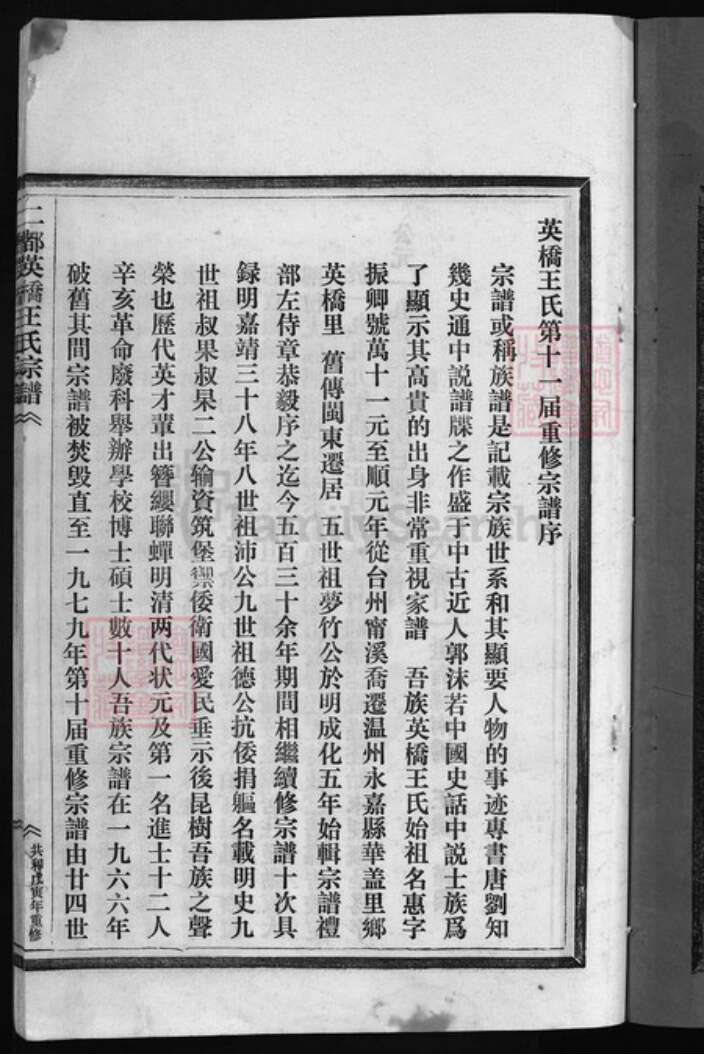 英橋王氏第十一届重修宗譜序
宗譜或稱族譜是記載宗族世系和其顯要人物的事迹專書唐劉知
幾史通中説譜牒之作盛于中古近人郭沫若中國史話中説士族爲
了顯示其高貴的出身非常重視家譜 吾族英橋王氏始祖名惠字
振卿號萬十一元至順元年從台州甯溪喬遷温州永嘉縣華盖里鄉
英橋里 舊傳閩東遷居 五世祖夢竹公於明成化五年始輯宗譜禮
部左侍章恭毅序之迄今五百三十余年期間相繼續修宗譜十次具
録明嘉靖三十八年八世祖沛公九世祖德公抗倭捐軀名載明史九
世祖叔果叔杲二公输資筑堡禦倭衛國愛民垂示後昆樹吾族之聲
榮也歷代英才輩出簪纓聯蟬明清两代状元及第一名進士十二人
辛亥革命廢科舉辦學校博士碩士數十人吾族宗譜在一九六六年
破舊其間宗譜被焚毁直至一九七九年第十届重修宗譜由廿四世
二都英橋王氏宗譜
共和戊寅年重修
FamilySearch